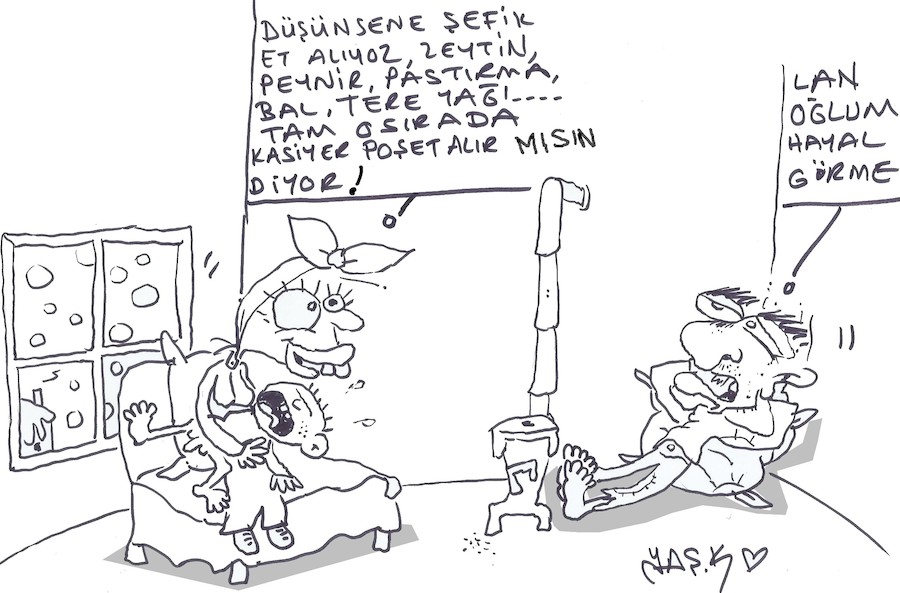 DÜŞÜNSENE ŞEFİK
ET ALIYOZ, ZEYTİN,
PEYNİR, PASTIRMA,
BAL, TERE YAĞI....
TAM OSIRADA
KASİYER POŞET ALIR MISIN
DİYOR!
LAN
OĞLUM
HAYAL
GÖRME
YAŞ.K